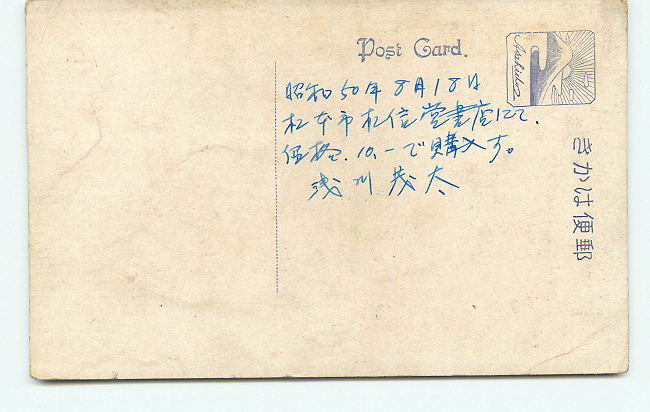 Post Card.
昭和50年8月18日
松本市松信堂書店にて、
価格、10.-で購入す。
浅川茂太
きかは便郵